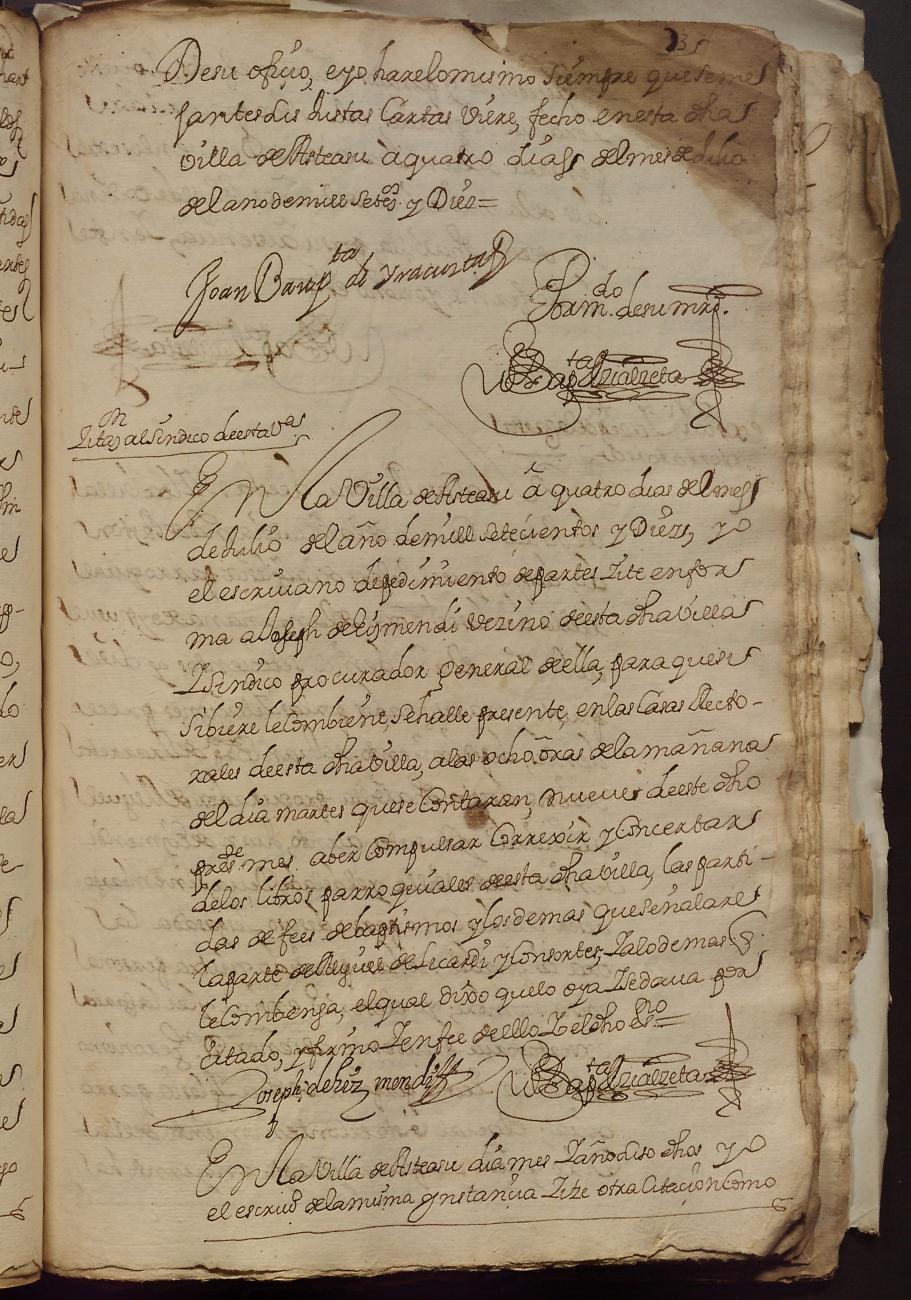 35
Desu ofiçio, e yo hare lo mismo siempre que seme
jantes dis Justas Cartas Viere, fecho en esta dha
villa de Asteasu a quatro dias del mes de Julio
del año de mill seteos y Diez =
Joan Bapta de Yracusta
Por mdo de su mrd.
Bapta Lizalzeta
Zitaon al Sindico de esta Va
En la Villa de Asteasu â quatro dias del mes
de Julio del año de mill seteçientos y Diez, yo
el escriuano de pedimiento de partes Zite en for
ma a Joseph de Eizmendi vezino de esta dha villa
Y Sindico procurador general de ella, para que si
Sibiere le Combiene, se halle presente, en las Casas Recto-
rales de esta dha villa, a las ocho oras de la mañana
del dia martes que se Contaran nueue de este dho
presde mes. aber Compulsar Correxir y Concertar
de los libros parroquiales de esta dha villa, las parti-
das de fees de baptismos y los demas que señalare
la parte de Miguel de Licardi y Consortes, Y a lo demas q
le Combenga, el qual dixo que lo oya Y se daua por
Citado, y firmo Y en fee de ello Yo el dho esno =
Joseph de heiz mendi
Bapta Lizalzeta
En la Villa de Asteasu dia mes Y año diso dhos yo
el escriuo de la misma ynstancia Zite otra Citaçion Como